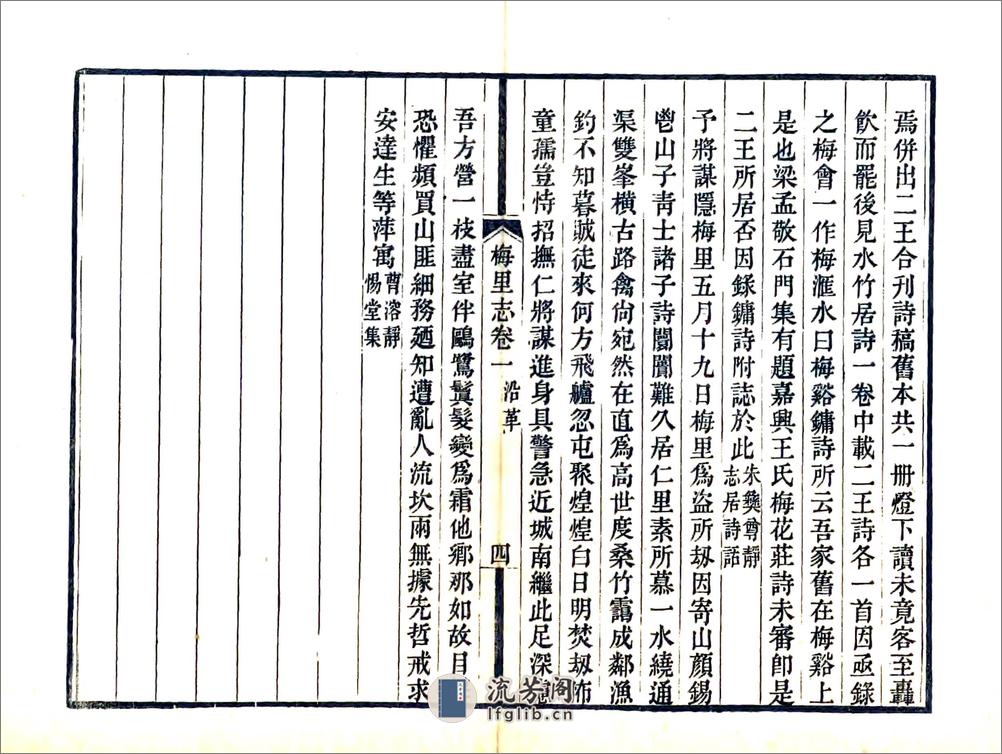 焉併出二王合刊詩稿舊本共一冊燈下讀未竟客至轟
飲而罷後見水竹居詩一卷中載二王詩各一首因亟錄
之梅會一作梅滙水曰梅谿鏞詩所云吾家舊在梅谿上
是也梁孟敬石門集有題嘉興王氏梅花莊詩未審卽是
二王所居否因錄鏞詩附誌於此朱彝尊靜
志居詩話
予將謀隱梅里五月十九日梅里爲盜所刼因寄山顏錫
鬯山子靑士諸子詩闤闠難久居仁里素所慕一水繞通
渠雙峯橫古路禽尙宛然在直爲高世度桑竹靄成鄰漁
釣不知暮賊徒來何方飛艫忽屯聚煌煌白日明焚刼怖
童孺豈恃招撫仁將謀進身具警急近城南繼此足深
梅里志卷一 沿革 四
吾方營一枝盡室伴鷗鷺鬢髮變爲霜他鄉那如故目
恐懼頻買山匪細務廼知遭亂人流坎兩無據先哲戒求
安達生等萍寓曹溶靜
惕堂集
流芳閣
lfglib.cn